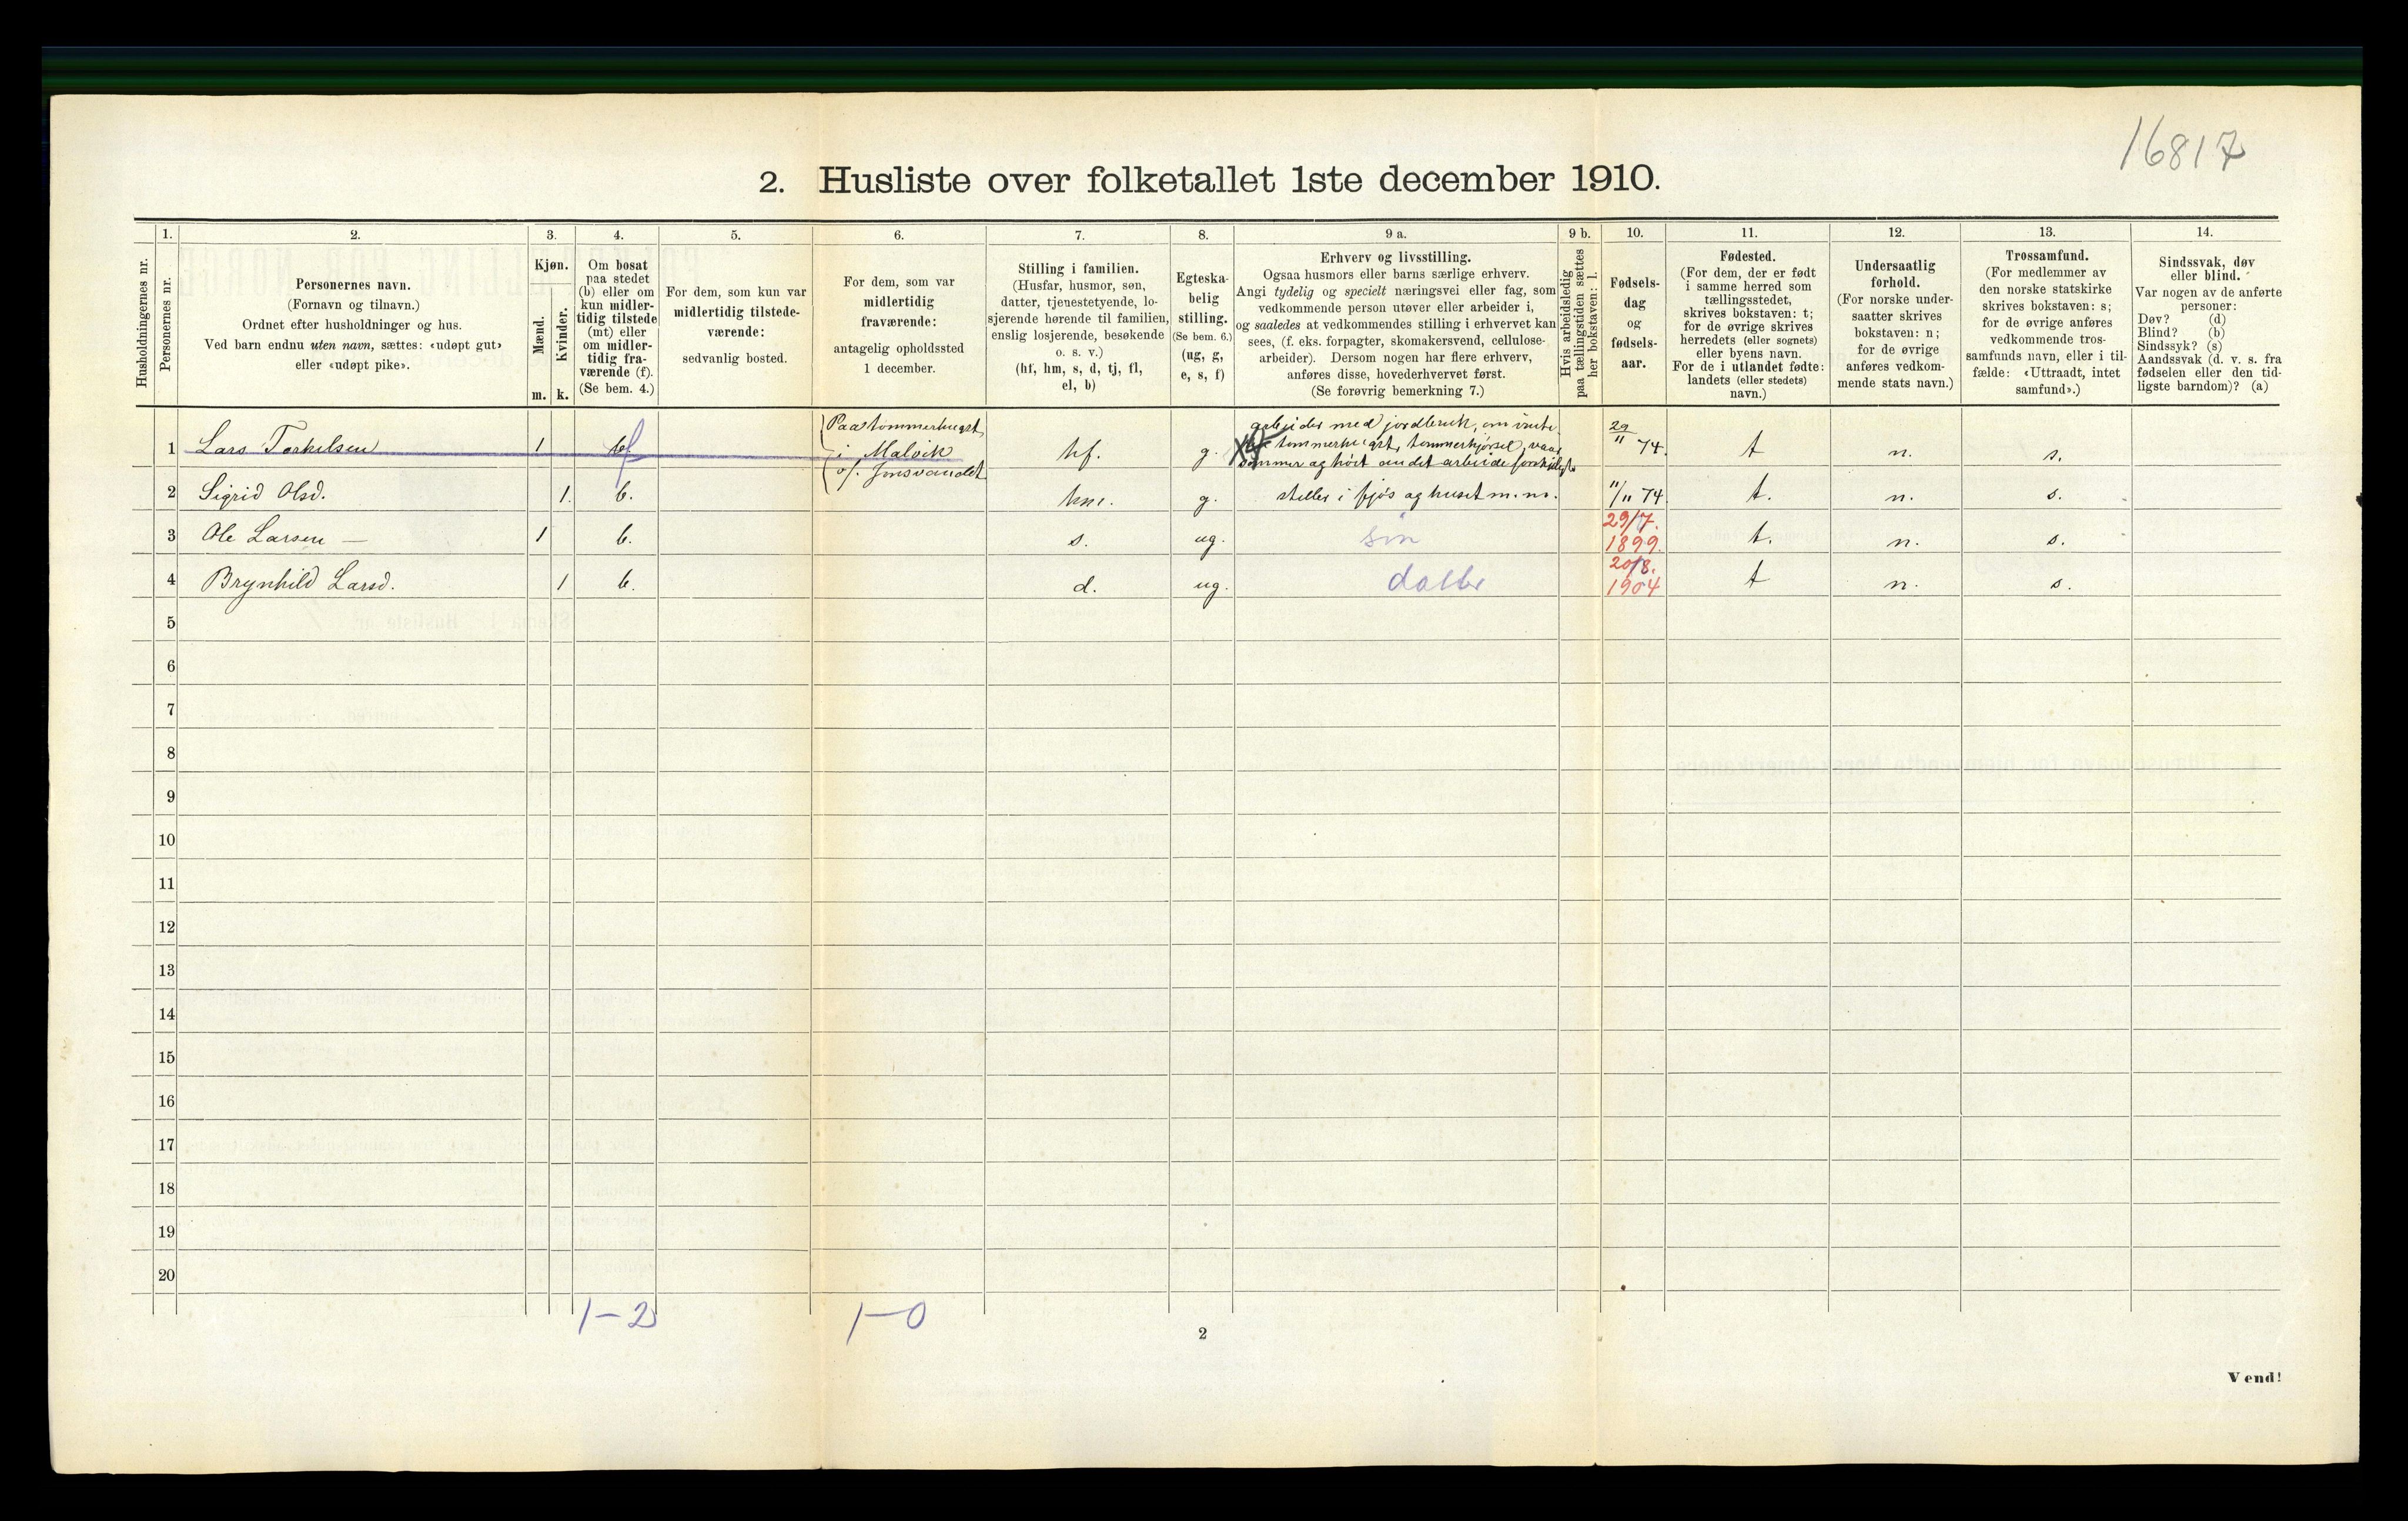 16817
2. Husliste over folketallet 1ste december 1910.
Husholdningernes nr.
1.
Personernes nr.
2.
Personernes navn.
(Fornavn og tilnavn.)
Ordnet efter husholdninger og hus.
Ved barn endnu uten navn, sættes: «udøpt gut»
eller «udøpt pike».
3.
Kjøn.
Mænd.
Kvinder.
m. k.
4.
Om bosat
paa stedet
(b) eller om
kun midler-
tidig tilstede
(mt) eller
om midler-
tidig fra-
værende (f).
(Se bem. 4.)
5.
For dem, som kun var
midlertidig tilstede-
værende:
sedvanlig bosted.
6.
For dem, som var
midlertidig
fraværende:
antagelig opholdssted
1 december.
7.
Stilling i familien.
(Husfar, husmor, søn,
datter, tjenestetyende, lo-
sjerende hørende til familien,
enslig losjerende, besøkende
o. s. v.)
(hf, hm, s, d, tj, fl,
el, b)
8.
Egteska-
belig
stilling.
(Se bem. 6.)
(ug, g,
e, s, f)
9 a.
Erhverv og livsstilling.
Ogsaa husmors eller barns særlige erhverv.
Angi tydelig og specielt næringsvei eller fag, som
vedkommende person utøver eller arbeider i,
og saaledes at vedkommendes stilling i erhvervet kan
sees, (f. eks. forpagter, skomakersvend, cellulose-
arbeider). Dersom nogen har flere erhverv,
anføres disse, hovederhvervet først.
(Se forøvrig bemerkning 7.)
9 b.
Hvis arbeidsledig
paa tællingstiden sættes
her bokstaven: l.
10.
Fødsels-
dag
og
fødsels-
aar.
11.
Fødested.
(For dem, der er født
i samme herred som
tællingsstedet,
skrives bokstaven: t;
for de øvrige skrives
herredets (eller sognets)
eller byens navn.
For de i utlandet fødte:
landets (eller stedets)
navn.)
12.
Undersaatlig
forhold.
(For norske under-
saatter skrives
bokstaven: n;
for de øvrige
anføres vedkom-
mende stats navn.)
13.
Trossamfund.
(For medlemmer av
den norske statskirke
skrives bokstaven: s;
for de øvrige anføres
vedkommende tros-
samfunds navn, eller i til-
fælde: «Uttraadt, intet
samfund».)
14.
Sindssvak, døv
eller blind.
Var nogen av de anførte
personer:
Døv? (d)
Blind? (b)
Sindssyk? (s)
Aandssvak (d. v. s. fra
fødselen eller den tid-
ligste barndom)? (a)
1 Lars Torkelsen 1 f Paa tømmerhugst
i Malvik
v/. Jonsvandet hf. g. arbeider med jordbruk, om vinte-
tømmerhugst, tømmerkjørsel, vaar
sommer og høst andet arbeide 29/11 74. t n. s.
2 Sigrid Olsd. 1. b. hm. g. steller i fjøs og huset m. m. 11/11 74 t. n. s.
3 Ole Larsen — 1 b. s. ug. søn 29/7.
1899. t. n. s.
4 Brynhild Larsd. 1 b. d. ug. datter 20/8.
1904 t n. s.
5
6
7
8
9
10
11
12
13
14
15
16
17
18
19
20
1-2 1-0
2
Vend!